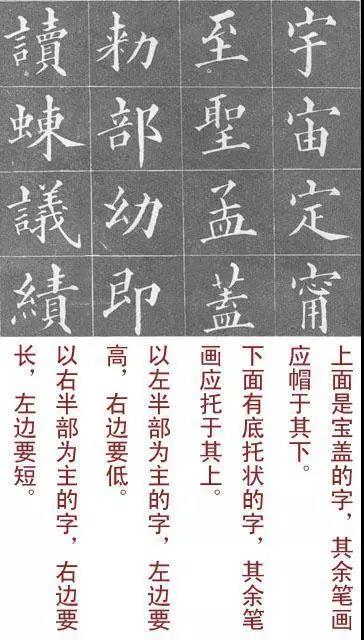 宇宙定甯
至聖孟蓋
勑部幼即
讀蝀議績
上面是宝盖的字，其余笔画
应帽于其下。
下面有底托状的字，其余笔
画应托于其上。
以左半部为主的字，左边要
高，右边要低。
以右半部为主的字，右边要
长，左边要短。